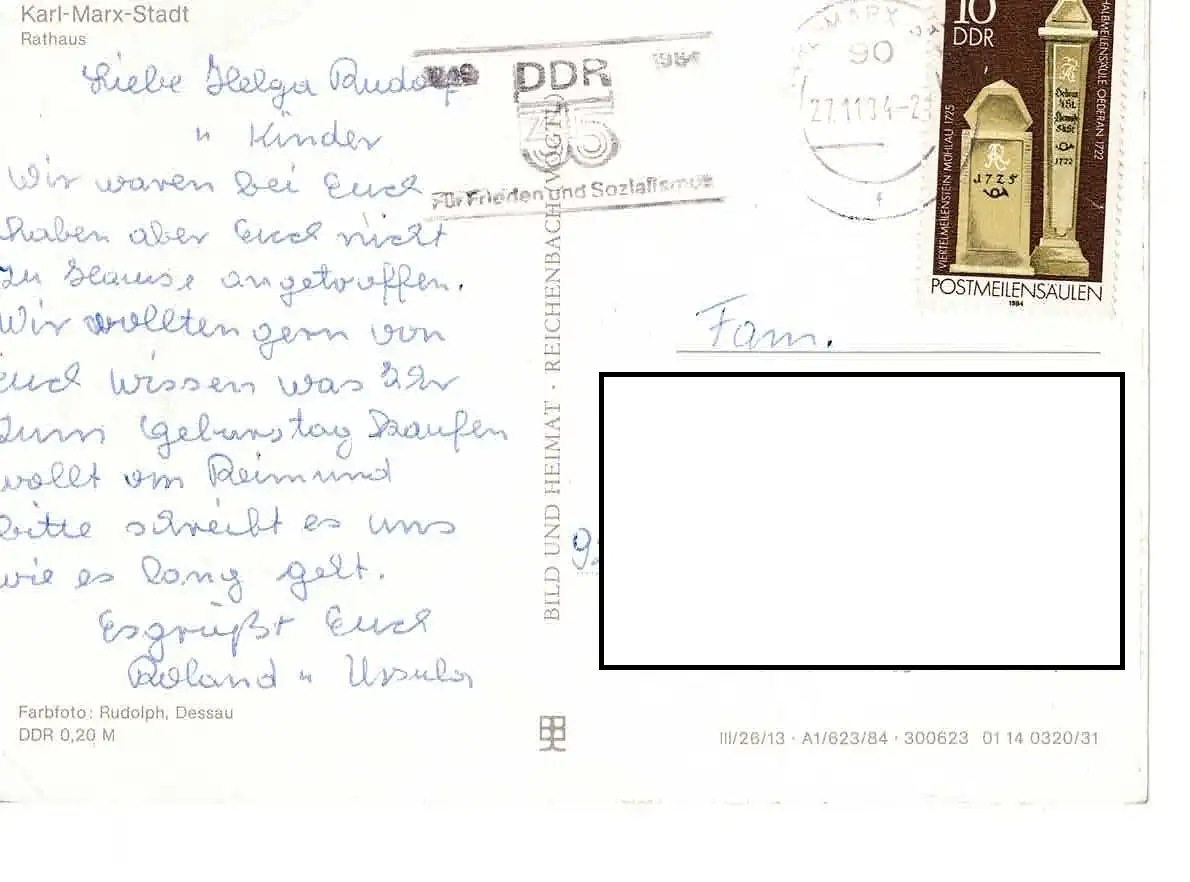 Karl-Marx-Stadt
Rathaus
Liebe Helga Rudolf
u Kinder
Wir waren bei Euch
haben aber Euch nicht
zu Hause angetroffen.
Wir wollten gern von
euch wissen was Ihr
zum Geburstag kaufen
wollt vom Reimund
bitte schreibt es uns
wie es lang gelt.
Es grüßt Euch
Roland u Ursula
Farbfoto: Rudolph, Dessau
DDR 0,20 M
BILD UND HEIMAT · REICHENBACH (VOGTL)
1949 DDR 1984
35
Für Frieden und Sozialismus
MARX
90
27.11.84-2
10
DDR
VIERTELMEILENSTEIN MÜHLAU 1725
HALBMEILENSÄULE OEDERAN 1722
AR
1725
AR
1722
POSTMEILENSÄULEN
1984
Fam.
III/26/13 · A1/623/84 · 300623 01 14 0320/31